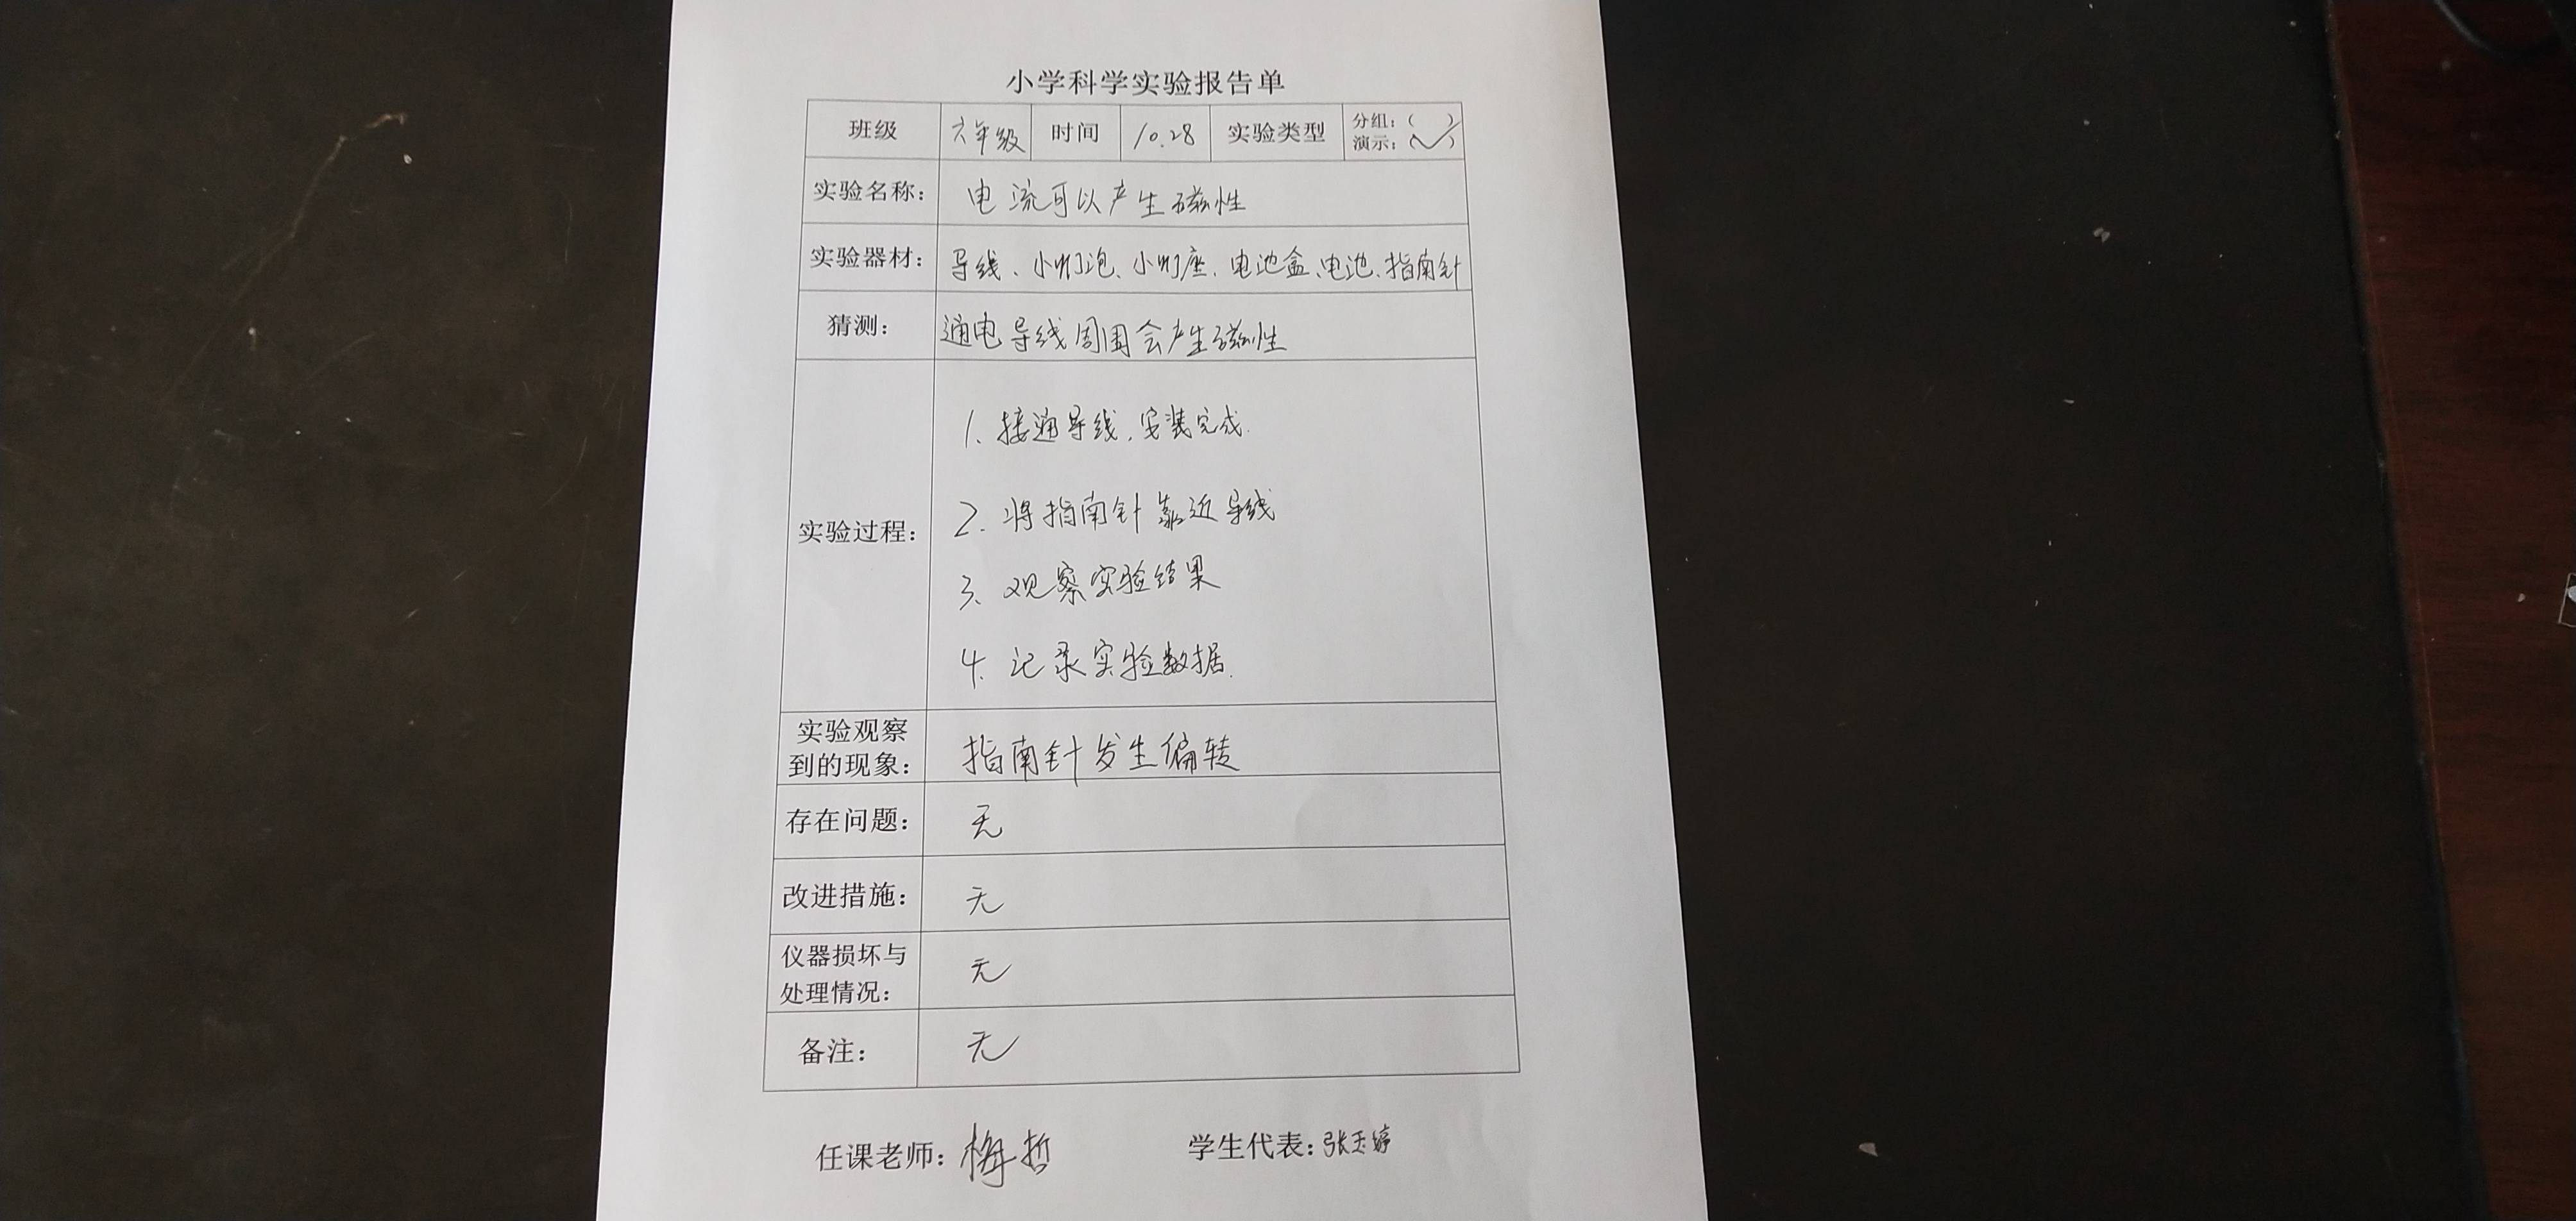 小学科学实验报告单
班级 六年级 时间 10.28 实验类型 分组：（ ）
演示：（✓）
实验名称： 电流可以产生磁性
实验器材： 导线、小灯泡、小灯座、电池盒、电池、指南针
猜测： 通电导线周围会产生磁性
实验过程：
1、接通导线，安装完成.
2、将指南针靠近导线
3、观察实验结果
4、记录实验数据.
实验观察
到的现象： 指南针发生偏转
存在问题： 无
改进措施： 无
仪器损坏与
处理情况： 无
备注： 无
任课老师：梅哲 学生代表：张玉婷